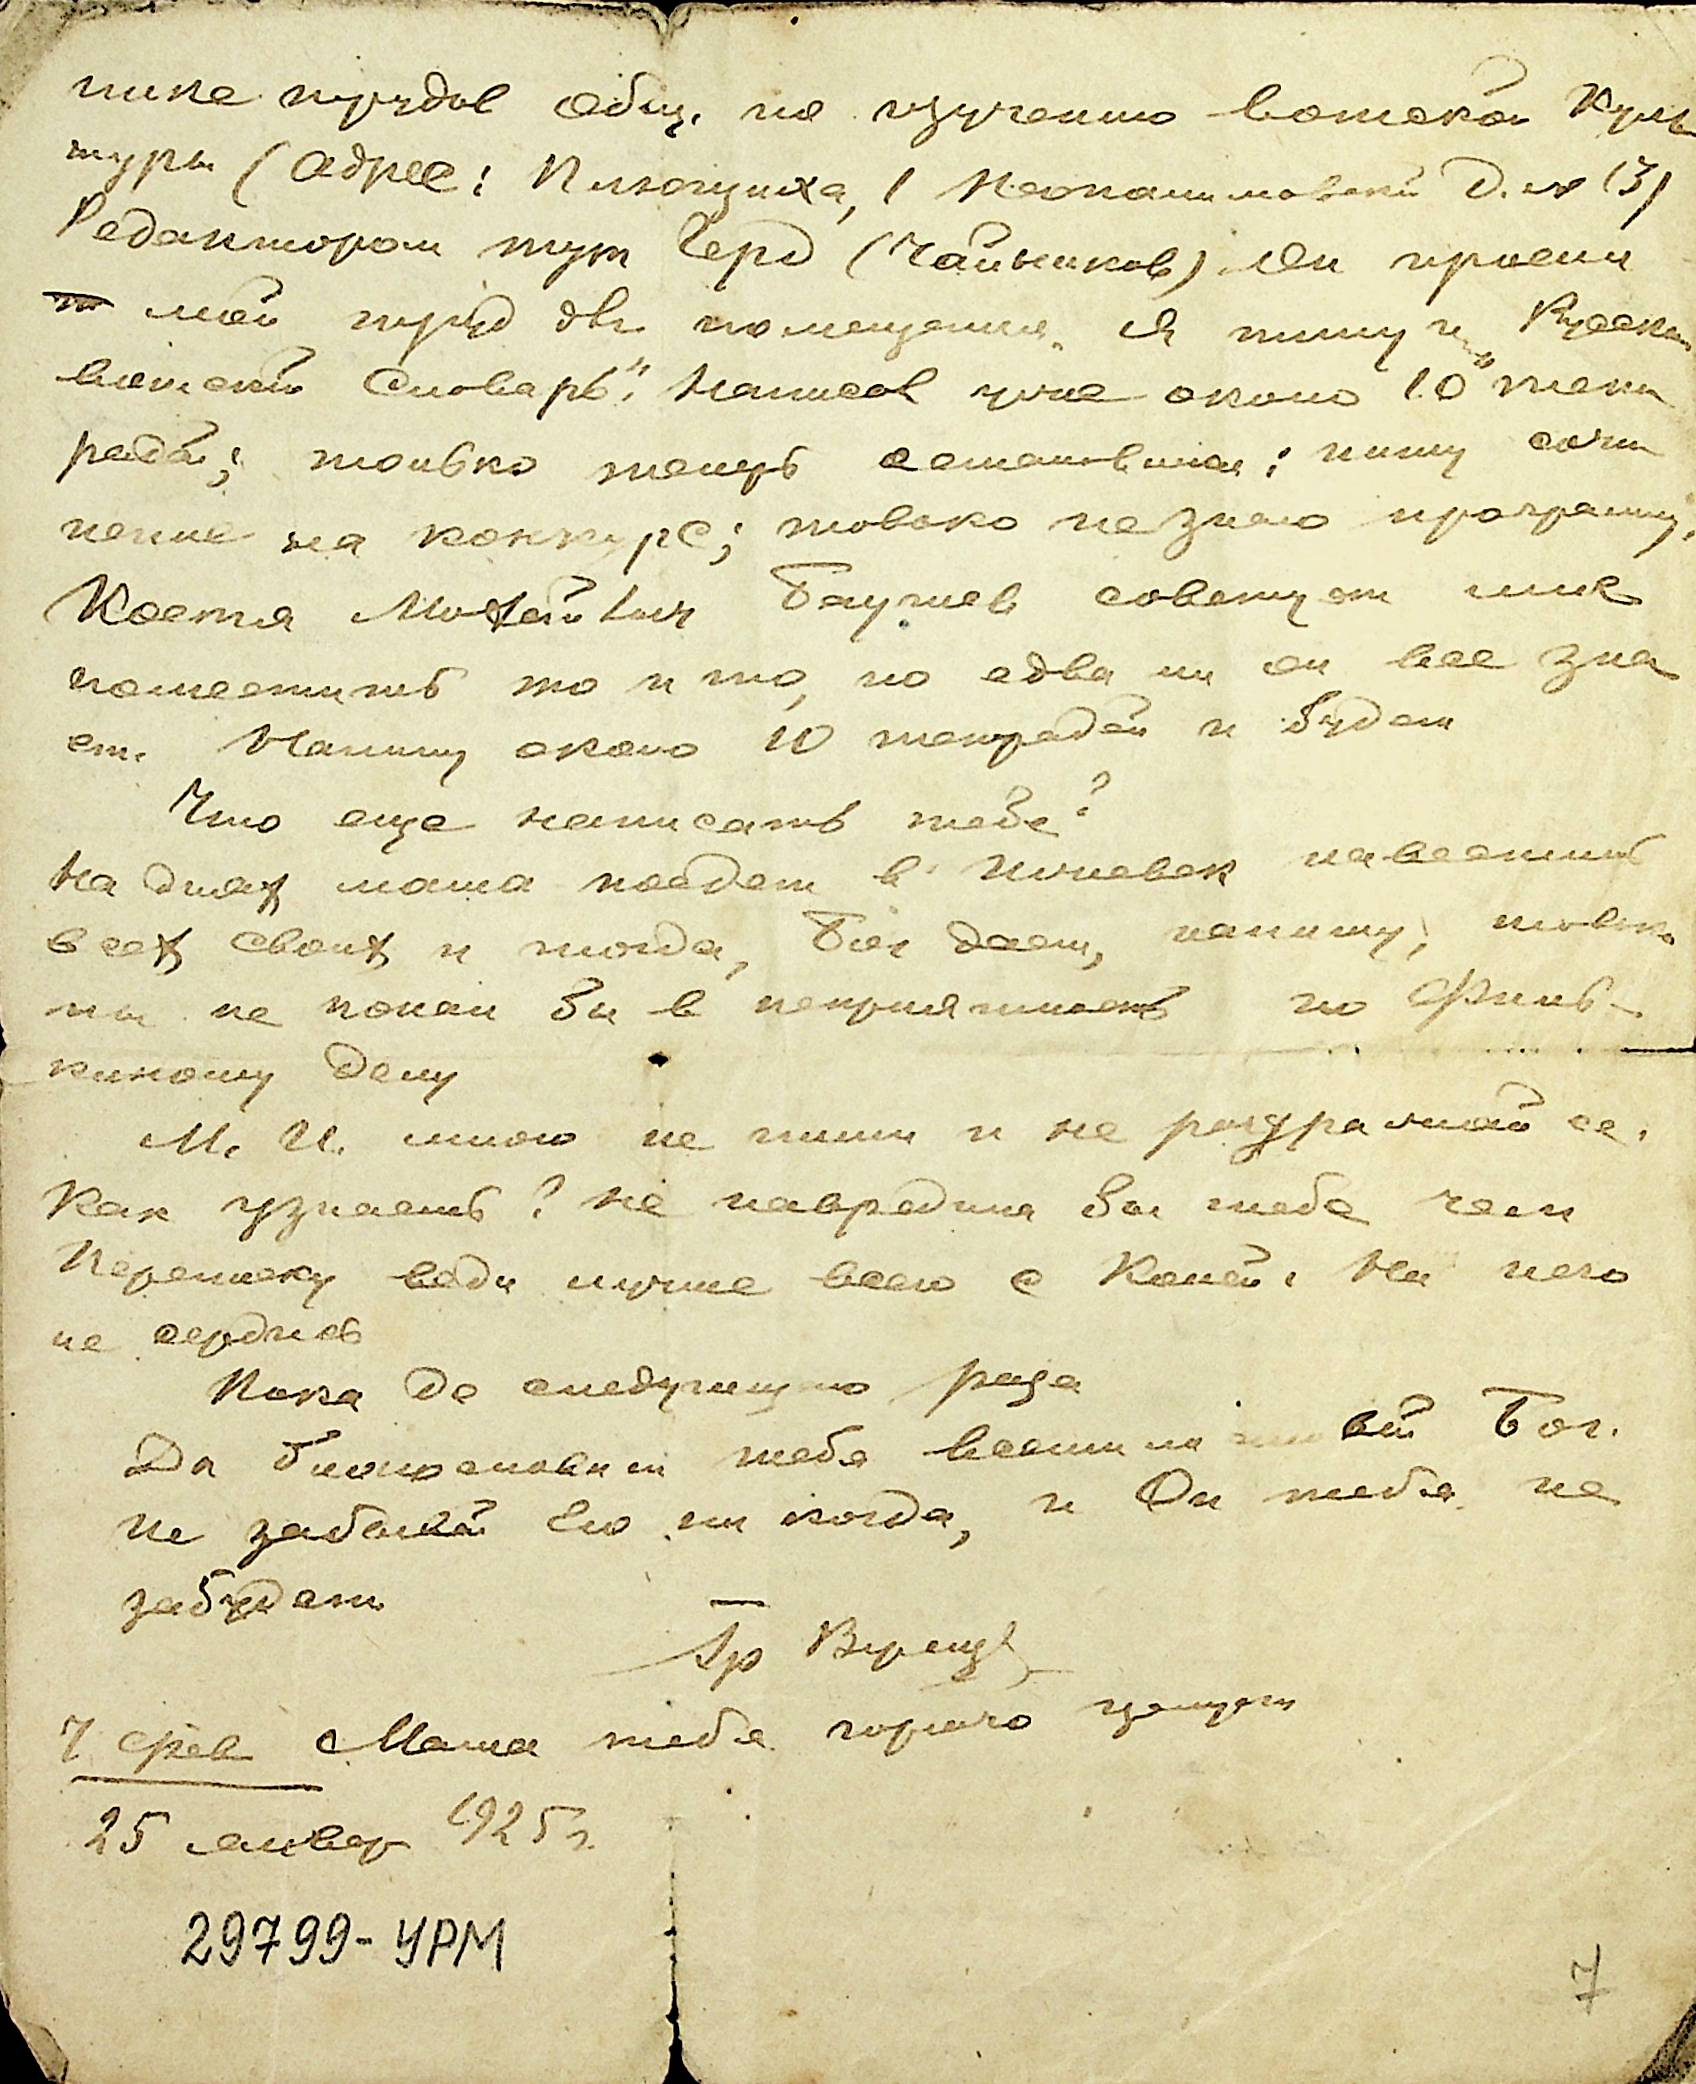 нике трудов общ. по изучению вотской куль
туры (адрес: Плющиха, 1 Неопалимовский д. № 13)
Редактором тут Герд (Чайников) Он просил
мой труд для помещения. Я пишу и "Русско
вотский словарь". Написал уже около 10 тет
радей; только теперь остановился: пишу сочи
нение на конкурс; только не знаю программу.
Костя Михайлович Баушев советует мне
поместить то и то, но едва ли он все зна
ет. Напишу около 10 тетрадей и будет
Что еще написать тебе?
На днях мама поедет в навестить
всех своих и тогда, Бог даст, напишу, только
ты не попал бы в неприятность по Филь-
киному делу
М. И. много не пиши и не раздражай ее.
Как узнаешь? Не навредила бы тебе чем
Переписку веди лучше всего с Колей. На него
не сердись
Пока до следующего раза
Да благословит тебя всемилостивый Бог.
Не забывай Его никогда, и Он тебя не
забудет
Гр Верещ
7 фев Мама тебя горячо целует
25 январ 1925 г.
29799-УРМ
7